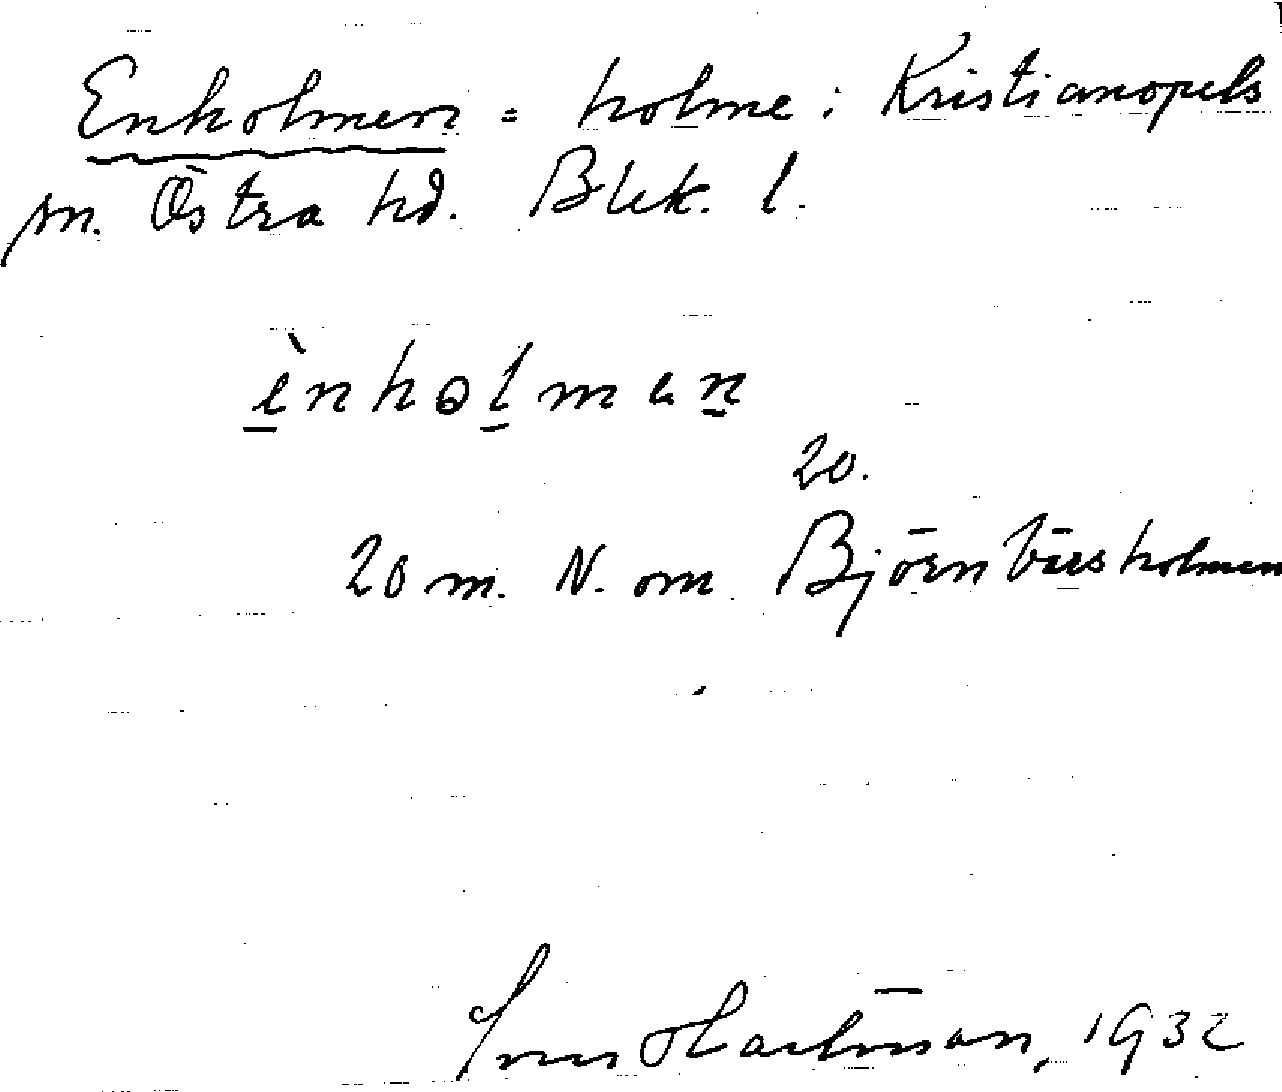 Enholmen = holme i Kristianopels
sn. Östra hd. Blek. l.
ènholmen
20.
20 m. N. om Björnbärsholmen
Hartman, 1932